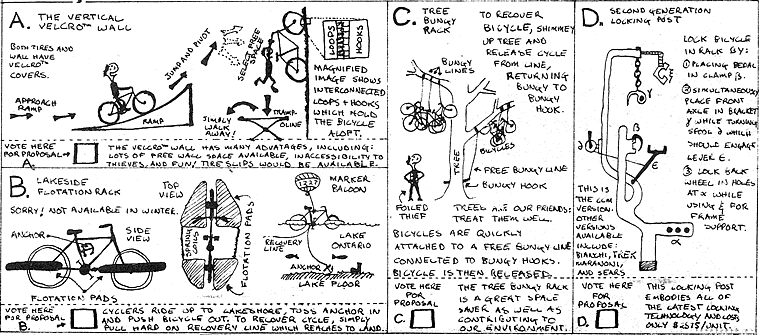 A. THE VERTICAL
VELCRO™ WALL
BOTH TIRES AND
WALL HAVE
VELCRO™
COVERS.
APPROACH
RAMP
RAMP
JUMP AND PIVOT
SELECT FREE
SPACE
SIMPLY
WALK
AWAY!
TRAMP-
OLINE
LOOPS
HOOKS
MAGNIFIED
IMAGE SHOWS
INTERCONNECTED
LOOPS + HOOKS
WHICH HOLD
THE BICYCLE
ALOFT.
VOTE HERE
FOR PROPOSAL
A.
THE VELCRO™ WALL HAS MANY ADVATAGES, INCLUDING:
LOTS OF FREE WALL SPACE AVAILABLE, INACCESSIBILITY TO
THIEVES, AND FUN! TIRE SLIPS WOULD BE AVAILABLE.
B. LAKESIDE
FLOTATION RACK
SORRY! NOT AVAILABLE IN WINTER.
ANCHOR
SIDE
VIEW
FLOTATION PADS
TOP
VIEW
FLOTATION PADS
MARKER
BALOON
RECOVERY
LINE
LAKE
ONTARIO
ANCHOR
LAKE FLOOR
VOTE HERE
FOR PROPOSAL
B.
CYCLERS RIDE UP TO LAKESHORE, TOSS ANCHOR IN
AND PUSH BICYCLE OUT. TO RECOVER CYCLE, SIMPLY
PULL HARD ON RECOVERY LINE WHICH REACHES TO LAND.
C. TREE
BUNGY
RACK
TO RECOVER
BICYCLE, SHIMMEY
UP TREE AND
RELEASE CYCLE
FROM LINE,
RETURNING
BUNGY TO
BUNGY
HOOK.
BUNGY
LINES
BICYCLES
TREE
FREE BUNGY LINE
BUNGY HOOK
FOILED
THIEF
TREES ARE OUR FRIENDS:
TREAT THEM WELL.
BICYCLES ARE QUICKLY
ATTACHED TO A FREE BUNGY LINE
CONNECTED TO BUNGY HOOKS.
BICYCLE IS THEN RELEASED.
VOTE HERE
FOR
PROPOSAL
C.
THE TREE BUNGY RACK
IS A GREAT SPACE
SAVER AS WELL AS
CONTRIBUTING TO
OUR ENVIRONMENT.
D. SECOND GENERATION
LOCKING POST
LOCK BICYCLE
IN RACK BY:
① PLACING PEDAL
IN CLAMP β.
② SIMULTANEOUSLY
PLACE FRONT
AXLE IN BRACKET
γ WHILE TURNING
SPOOL ∂ WHICH
SHOULD ENGAGE
LEVER ε.
③ LOCK BACK
WHEEL IN HOLES
AT α WHILE
USING ξ FOR
FRAME
SUPPORT.
γ
β
∂
ε
α
THIS IS
THE CCM
VERSION:
OTHER
VERSIONS
AVAILABLE
INCLUDE:
BIANCHI, TREK
MARANONI,
AND SEARS
VOTE HERE
FOR
PROPOSAL
D.
THIS LOCKING POST
EMBODIES ALL OF
THE LATEST LOCKING
TECHNOLOGY AND COSTS
ONLY